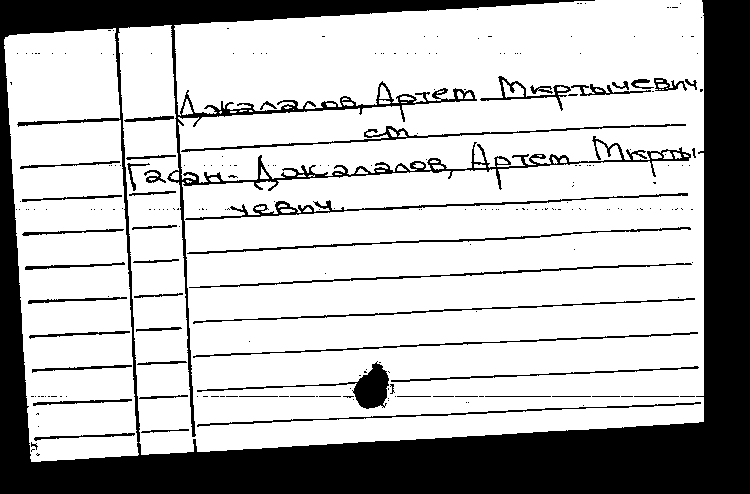 Джалалов, Артем Мкртычевич.
см.
Гасан-Джалалов, Артем Мкрты-
чевич.